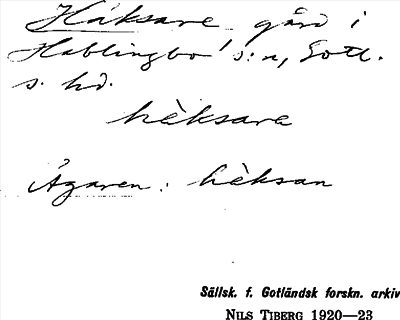 Häksare, gård i
Hablingbo s:n, Gotl.
s. hd.
hèksara
Ägaren: hèksan
Sällsk. f. Gotländsk forskn. arkiv
NILS TIBERG 1920—23